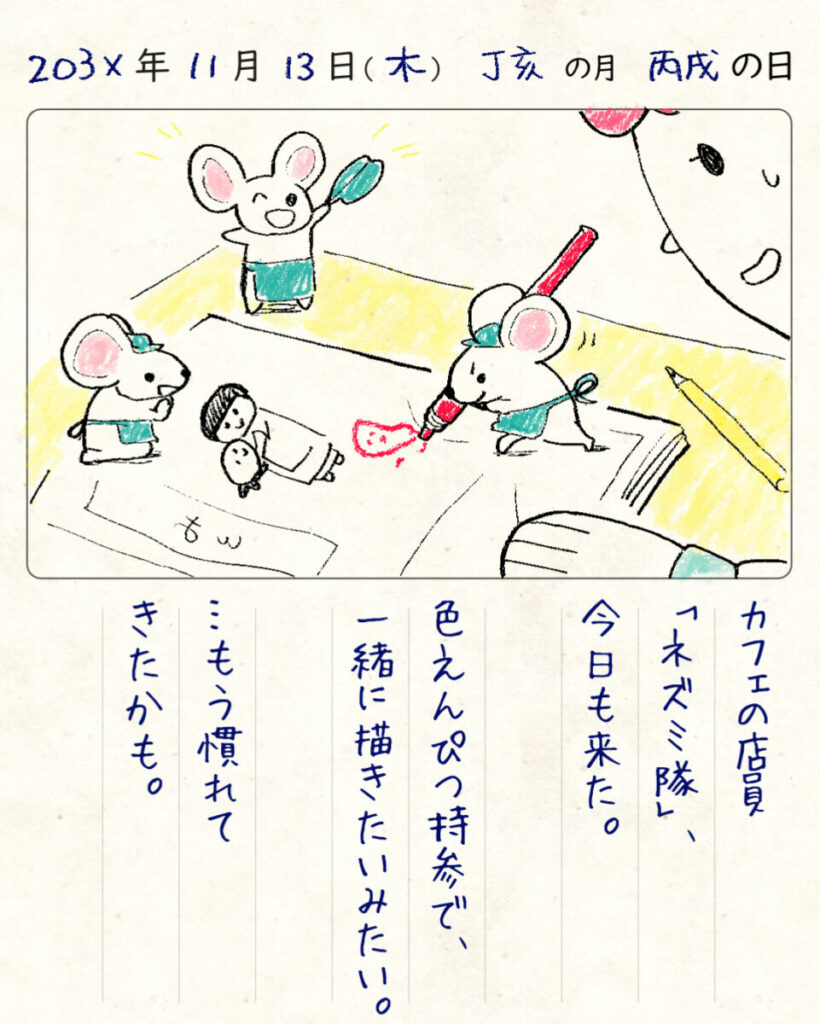 203X年 11月 13日(木) 丁亥の月 丙戌の日
もω
カフェの店員
「ネズミ隊」、
今日も来た。
色えんぴつ持参で、
一緒に描きたいみたい。
…もう慣れて
きたかも。